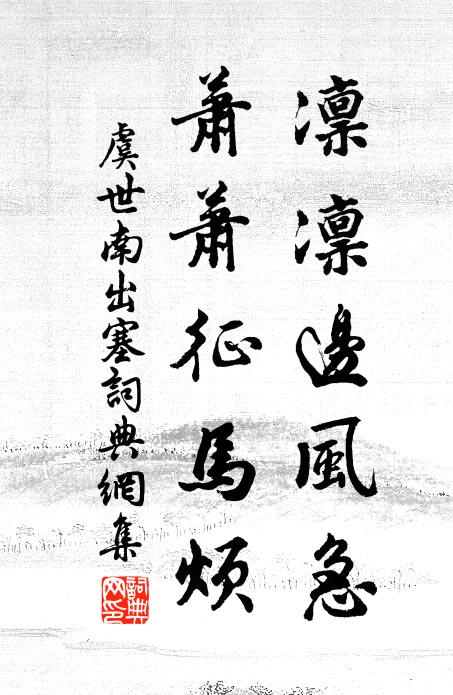 凛凛邊風急
蕭蕭征馬煩
虞世南出塞詞典網集
詞典
网印